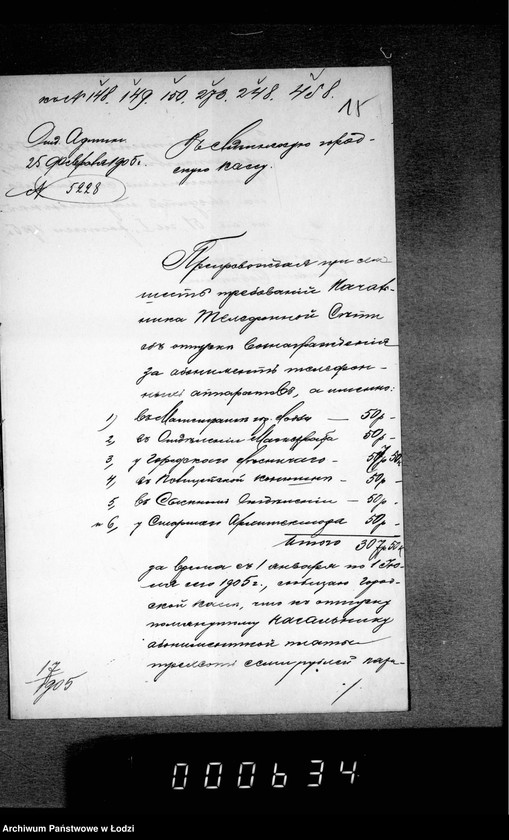 на № 148. 149. 150. 273. 248. 458.
15
Отд. Админ.
25 Февраля 1905 г.
№ 5228
Въ Лодзинскую город-
скую кассу.
Препровождая при семъ
шесть требованій Началь-
ника Телефонной Сѣти
объ отпускѣ вознагражденія
за абонементъ телефон-
ныхъ аппаратовъ, а именно:
1) въ Магистратѣ гор. Лодзи — 50 р -
2, въ Отдѣленіи Магистрата 50 р -
3, у Городского - 57 р 50 к
4, въ 50 р -
5, въ Отдѣленіи — 50 р -
и 6, у Старшаго Архитектора 50 р -
Итого 307 р 50 к
за время съ 1 января по 1 Ію-
ля сего 1905 г., сообщаю город-
ской кассѣ, что къ отпуску
помянутому Начальнику
абонементной платы
триста семь рублей пять-
17/1905
./.
000634
Archiwum Państwowe w Łodzi